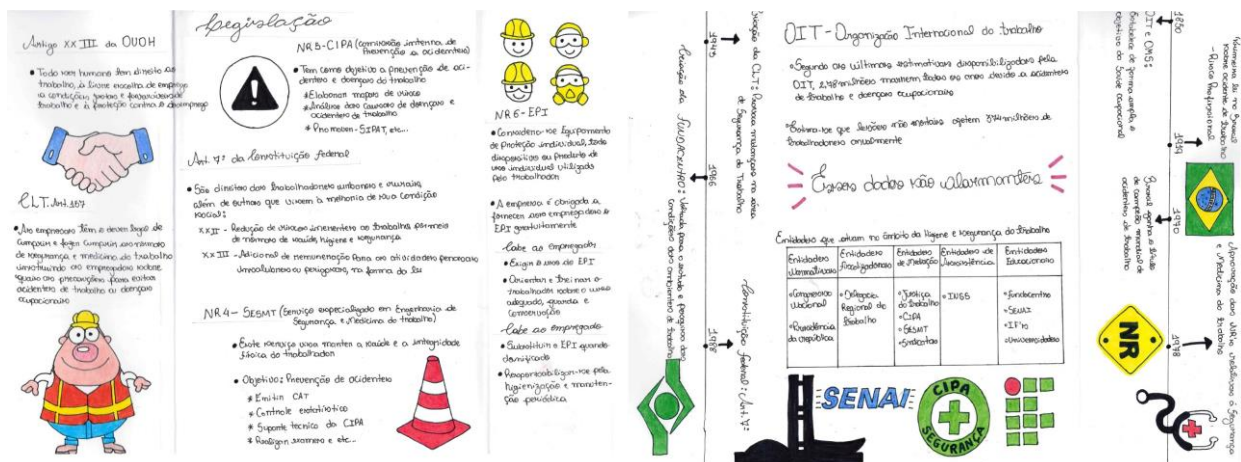 Legislação
Artigo XXIII da DUDH
• Todo ser humano tem direito ao
trabalho, à livre escolha de emprego
a condições justas e
trabalho e à proteção contra o desemprego
CLT. Art. 157
• As empresas têm o dever legal de
cumprir e fazer cumprir as normas
de segurança e medicina do trabalho
instruindo os empregados sobre
quais as precauções para evitar
acidentes de trabalho ou doenças
ocupacionais
NR5-CIPA (comissão interna de
Prevenção a acidentes)
• Tem como objetivo a prevenção de aci-
dentes e doenças do trabalho
* Elaboram mapa de riscos
* Análise das causas de doenças e
acidentes de trabalho
* Promovem-SIPAT, etc...
Art. 7º da Constituição federal
• São direitos dos trabalhadores urbanos e rurais,
além de outros que visem à melhoria de sua condição
social:
XXII - Redução de riscos inerentes ao trabalho por meio
de normas de saúde, higiene e segurança
XXIII - Adicional de remuneração para as atividades penosas,
insalubres ou perigosas, na forma da lei
NR4 - SESMT (Serviço especializado em Engenharia de
Segurança e Medicina do trabalho)
• Este serviço visa manter a saúde e a integridade
física do trabalhador
• Objetivo: Prevenção de acidentes
* Emitir CAT
* Controle estatístico
* Suporte técnico da CIPA
* Realizar exames e etc...
NR6 - EPI
• Considera-se Equipamento
de Proteção individual, todo
dispositivo ou produto de
uso individual utilizado
pelo trabalhador
• A empresa é obrigada a
fornecer aos empregados o
EPI gratuitamente
- Cabe ao empregador
• Exigir o uso do EPI
• Orientar e treinar o
trabalhador sobre o uso
adequado, guarda e
conservação
- Cabe ao empregado
• Substituir o EPI quando
danificado
• Responsabilizar-se pela
higienização e manuten-
ção periódica
1943
Criação da CLT:
de Segurança do Trabalho
1966
Criação da FUNDACENTRO: Voltada para o estudo e pesquisa das
condições dos ambientes de trabalho
1988
Constituição federal: Art. 7º:
OIT - Organização Internacional do trabalho
• Segundo as últimas estimativas disponibilizadas pela
OIT, 2,78 milhões morrem todos os anos devido a acidentes
de trabalho e doenças ocupacionais
• Estima-se que lesões não mortais afetem 374 milhões de
trabalhadores anualmente
Esses dados são alarmantes
Entidades que atuam no âmbito da Higiene e segurança do trabalho
Entidades Normativas
Entidades fiscalizadoras
Entidades de Relação
Entidades de Assistência
Entidades Educacionais
• Congresso Nacional
• Presidência da república
• Delegacia Regional do Trabalho
• Justiça do trabalho
• CIPA
• SESMT
• Sindicatos
• INSS
• Fundacentro
• SENAI
• IF's
• Universidades
SENAI
CIPA
SEGURANÇA
1950
OIT e OMS:
Estabelece de forma ampla, o
objetivo da Saúde ocupacional
1919
Primeira lei no Brasil
sobre acidente de trabalho
- Risco Profissional
1970
Brasil ganha o título
de campeão mundial de
acidentes de trabalho
1978
Aprovação das NR's relativas à Segurança
e Medicina do trabalho
NR